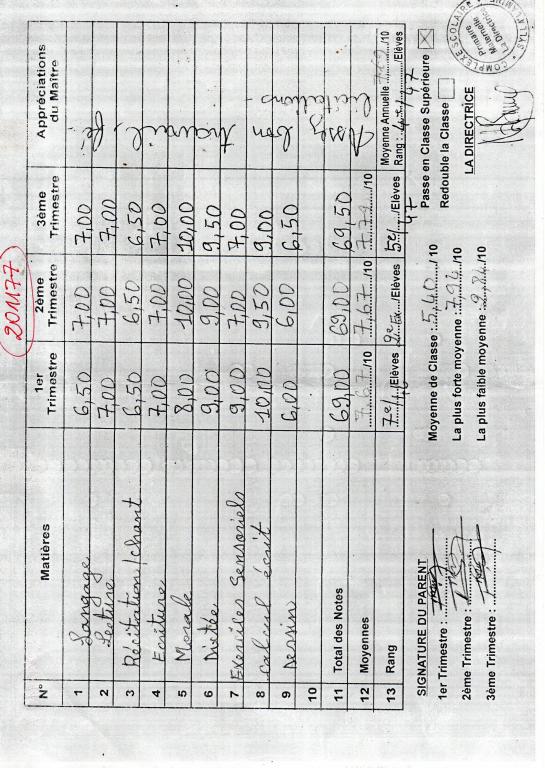 201177
N° Matières 1er Trimestre 2ème Trimestre 3ème Trimestre Appréciations du Maître
1 Langage 6,50 7,00 7,00
2 Lecture 7,00 7,00 7,00
3 Récitation/chant 6,50 6,50 6,50
4 Ecriture 7,00 7,00 7,00
5 Morale 8,00 10,00 10,00
6 Dictée 9,00 9,00 9,50
7 Exercices Sensoriels 9,00 7,00 7,00
8 Calcul écrit 10,00 9,50 9,00
9 Dessin 6,00 6,00 6,50
10
11 Total des Notes 69,00 69,00 69,50
12 Moyennes 7,67 /10 7,67 /10 /10
13 Rang 7e/ /Elèves 9e Ex /Elèves 5e/47 /Elèves
travail,
Assez bon
Moyenne Annuelle /10
Rang : /47 /Elèves
SIGNATURE DU PARENT
1er Trimestre :
2ème Trimestre :
3ème Trimestre :
Moyenne de Classe : 5,40
La plus forte moyenne :
La plus faible moyenne : /10
Passe en Classe Supérieure
Redouble la Classe
LA DIRECTRICE
COMPLEXE SCOLAIRE
Primaire
Maternelle
La Directrice